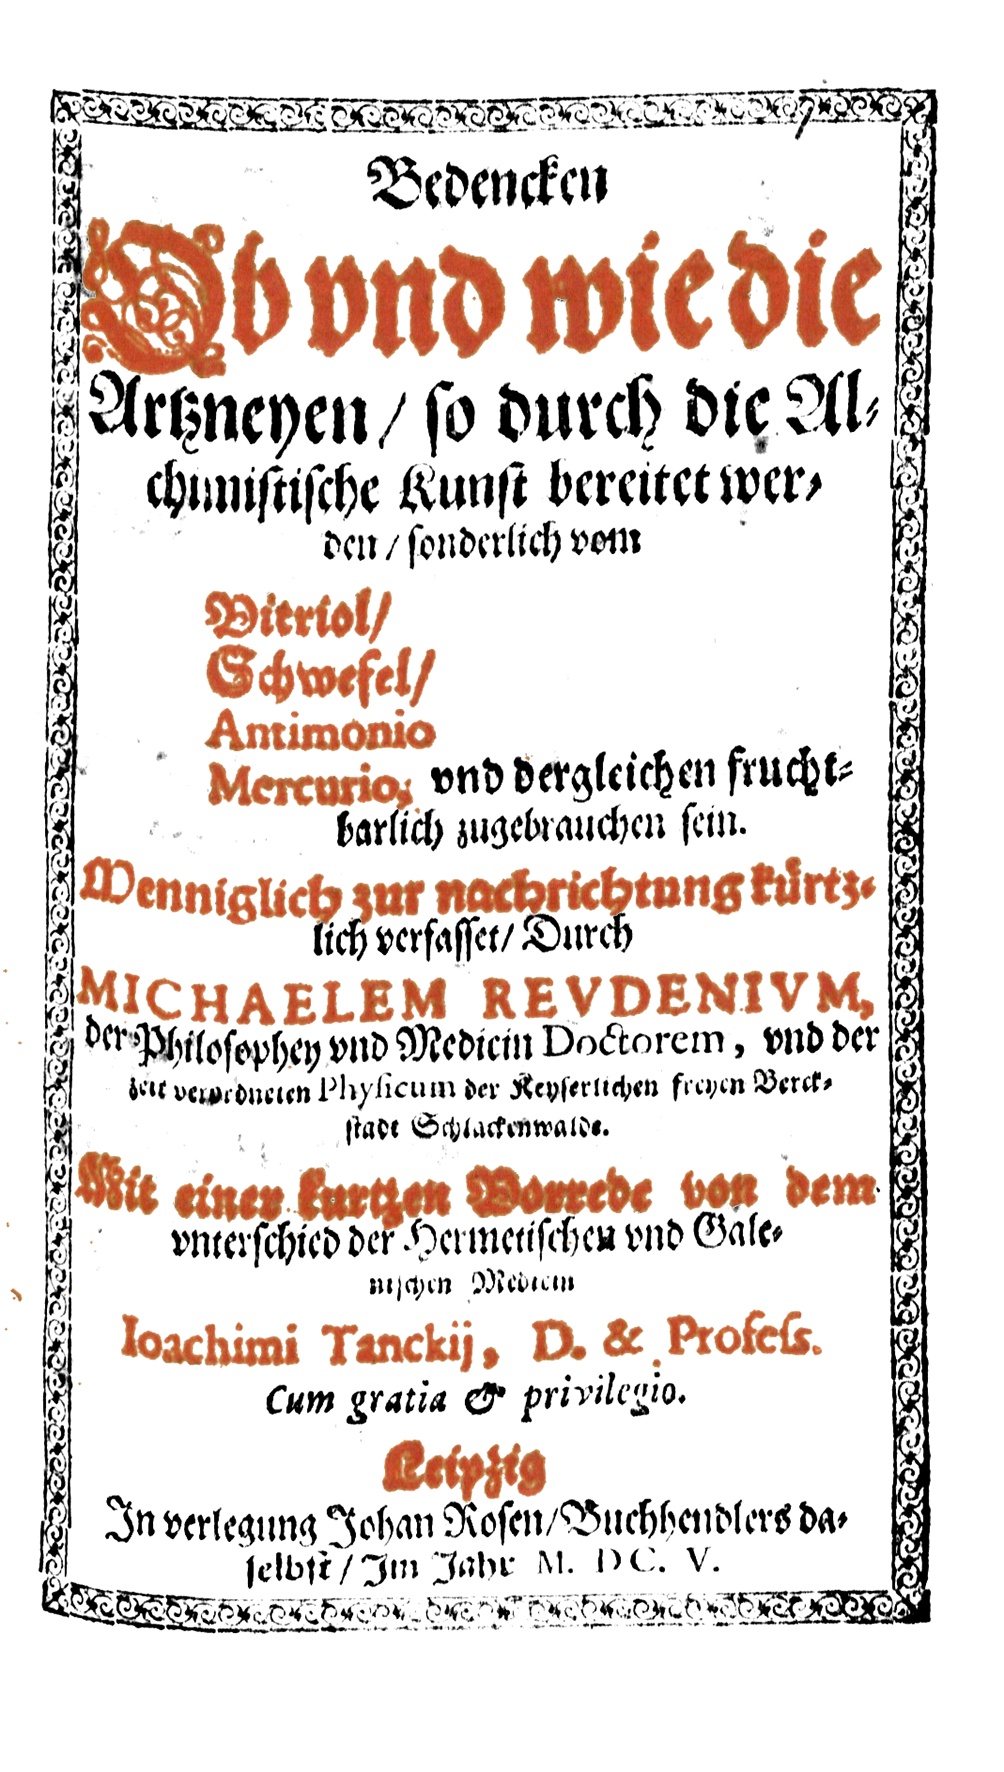 Bedencken
Ob vnd wie die
Artzneyen / so durch die Al-
chimistische Kunst bereitet wer-
den / sonderlich vom
Vitriol /
Schwefel /
Antimonio
Mercurio, vnd dergleichen frucht-
barlich zugebrauchen sein.
Menniglich zur nachrichtung kürtz-
lich verfasset / Durch
MICHAELEM REVDENIVM,
der Philosophey vnd Medicin Doctorem, vnd der
zeit verordneten Physicum der Keyserlichen freyen Berck-
stadt Schlackenwalde.
Mit einer kurtzen Vorrede von dem
vnterschied der Hermetischen vnd Gale-
nischen Medicin
Ioachimi Tanckij, D. & Profess.
Cum gratia & privilegio.
Leipzig
In verlegung Johan Rosen / Buchhendlers da-
selbst / Im Jahr M. DC. V.